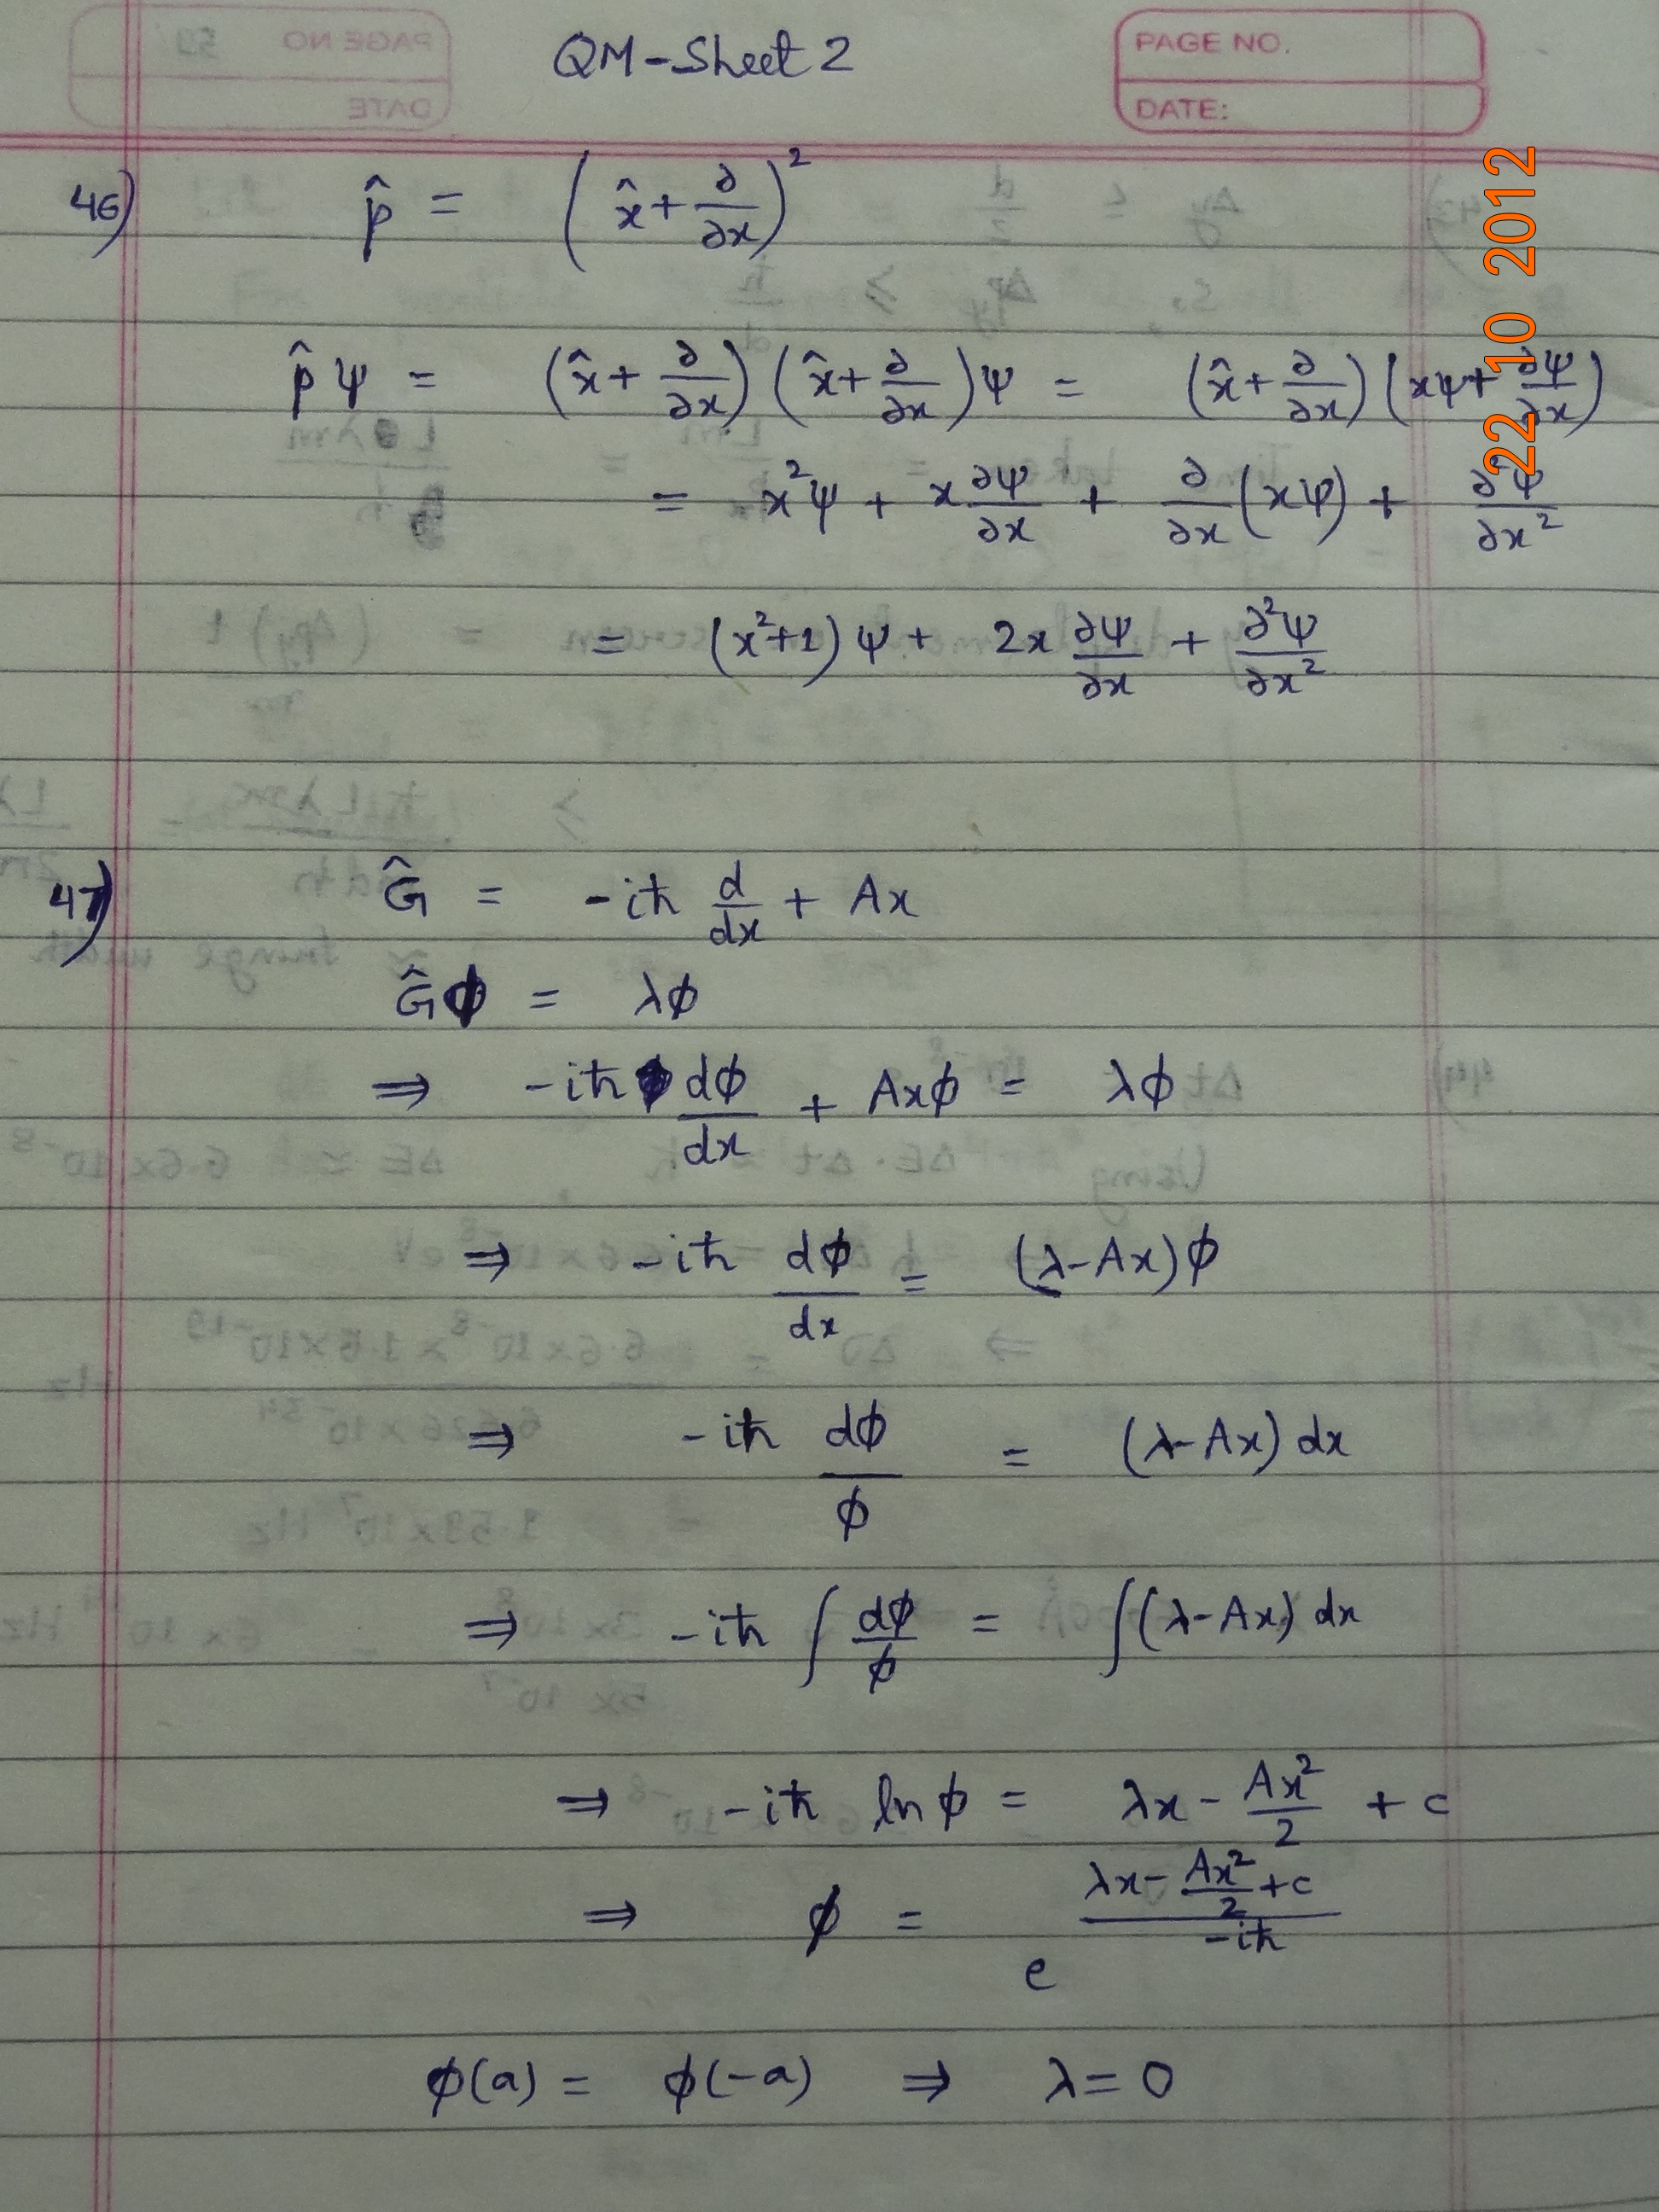 QM-Sheet 2
PAGE NO.
DATE:
22 10 2012
46) p̂ = (x̂ + ∂/∂x)²
p̂ψ = (x̂ + ∂/∂x)(x̂ + ∂/∂x)ψ = (x̂ + ∂/∂x)(xψ + ∂ψ/∂x)
= x²ψ + x ∂ψ/∂x + ∂/∂x (xψ) + ∂²ψ/∂x²
= (x²+1)ψ + 2x ∂ψ/∂x + ∂²ψ/∂x²
47) Ĝ = -iħ d/dx + Ax
Ĝϕ = λϕ
⇒ -iħ dϕ/dx + Axϕ = λϕ
⇒ -iħ dϕ/dx = (λ-Ax)ϕ
⇒ -iħ dϕ/ϕ = (λ-Ax) dx
⇒ -iħ ∫ dϕ/ϕ = ∫(λ-Ax) dx
⇒ -iħ ln ϕ = λx - Ax²/2 + c
⇒ ϕ = e^((λx - Ax²/2 + c)/(-iħ))
ϕ(a) = ϕ(-a) ⇒ λ = 0